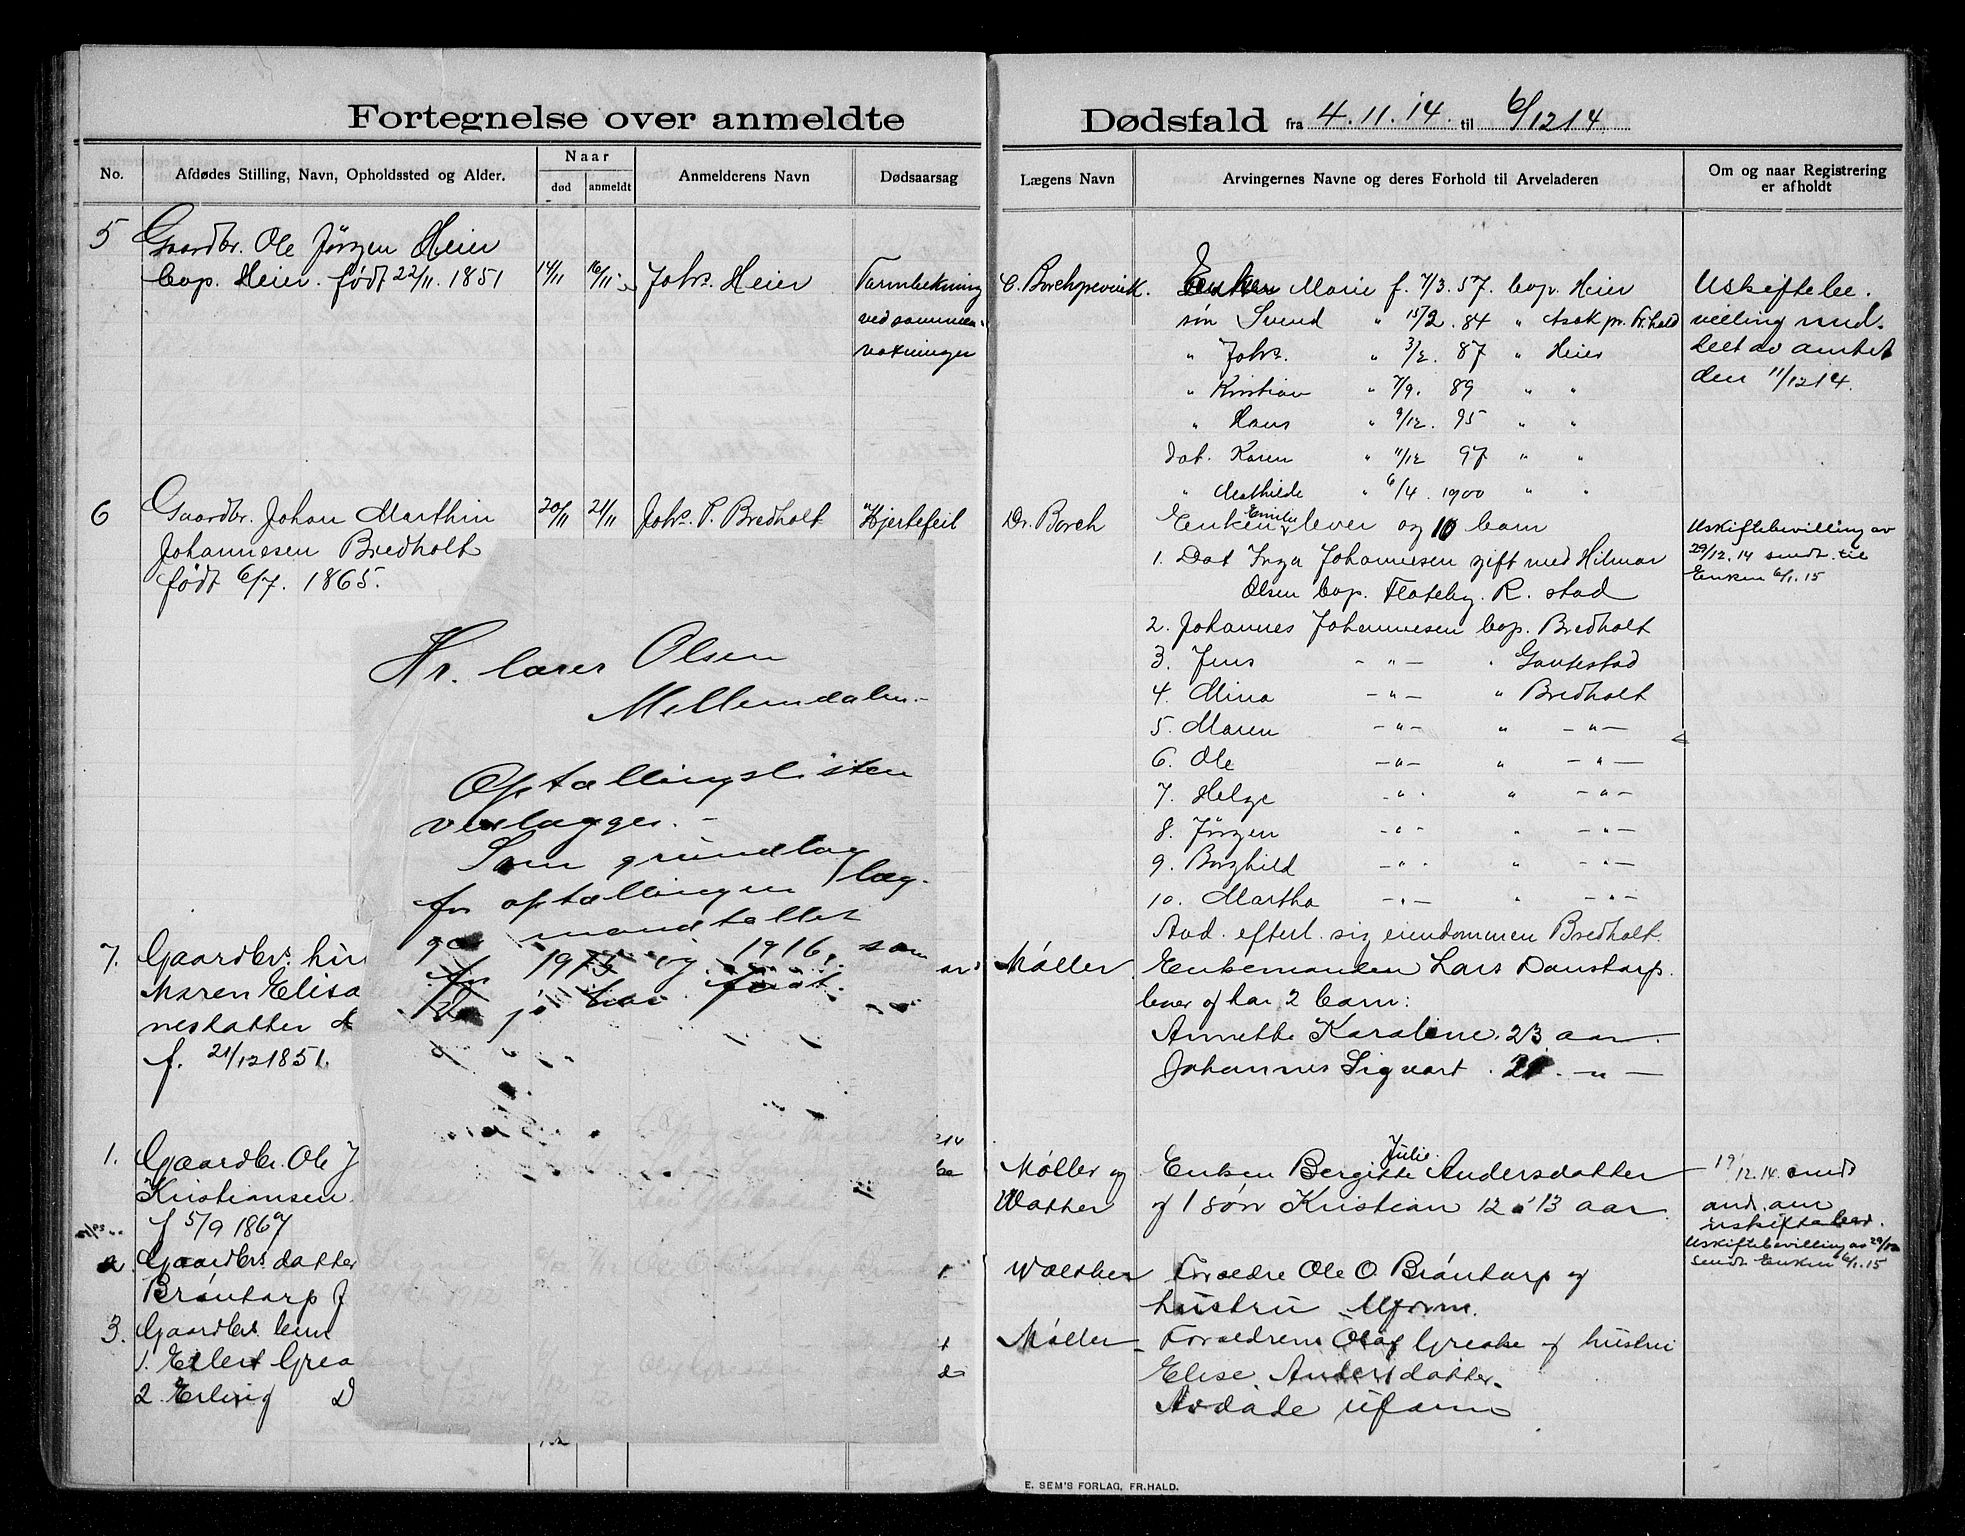 Fortegnelse over anmeldte Dødsfald fra 4.11.14. til 6/12 14
No.
Afdødes Stilling, Navn, Opholdssted og Alder.
Naar
død
anmeldt
Anmelderens Navn
Dødsaarsag
Lægens Navn
Arvingernes Navne og deres Forhold til Arveladeren
Om og naar Registrering
er afholdt
5 Gaardbr. Ole Jörgen Heier
bop. Heier. født 22/11. 1851
14/11
16/11
Johs. Heier
ved sammen-
voksninger
Enken Marie f. 7/3. 57. bop. Heier
søn Svend " 15/2. 84 " Asak pr. Fr.hald
" Johs. " 3/2. 87 " Heier
" Kristian " 7/9. 89 " "
" Hans " 9/12. 95 " "
Dat. Karen " 11/12 97 " "
" Mathilde " 6/4. 1900 " "
Uskiftebe.
villing med.
delt av amtet
den 11/12 14.
6 Gaardbr. Johan Marthin
Johannesen Bredholt
født 6/7. 1865.
20/11
21/11
Johs. P. Bredholt
Hjertefeil
Dr. Borch
Enken Emilie lever og 10 barn
1. Dat Inga Johannesen gift med Hilmar
Olsen bop. Flateby. R. stad
2. Johannes Johannesen bop. Bredholt
3. Jens - " - " Gautestad
4. Mina - " - " Bredholt
5. Maren - " - " - " -
6. Ole - " - " - " -
7. Helge - " - " - " -
8. Jörgen - " - " - " -
9. Borghild - " - " - " -
10. Martha - " - " - " -
Avd. efterl. sig eiendommen Bredholt.
Uskiftebevilling av
29/12. 14 sendt til
Enken 6/1. 15
Hr. lærer Olsen
Mellemdalen.-
Optællingslisten
vedlægges. -
Som grundlag
for optællingen /læg-
ges mandtallet
for 1915 og 1916, som
De jo har faat.
7. Gaardbr.
Maren Elisa
nesdatter
f. 21/12 1851.
Møller
Enkemanden Lars Danstorp.
lever og har 2 barn:
Annette Karoline. 23 aar.
Johannes Sigvart. 21. - " -
1. Gaardbr. Ole J
Kristiansen
f 5/9 1867
Møller og
Walther
Enken Bergitte Julie Andersdatter
og 1 søn Kristian 12 á 13 aar
19/12. 14. sendt
and. om
uskiftebev.
Uskiftebevilling av 29/12
sendt Enken 6/1. 15
2. Gaardbr. datter
Brøntorp
Walther
Forældre Ole O. Brøntorp og
hustru
3. Gaardbr. barn
1. Eilert Grea
2. Erling D
Møller
Forældrene Olaf Greake og hustru
Elise Andersdatter.
E. SEM'S FORLAG, FR.HALD.